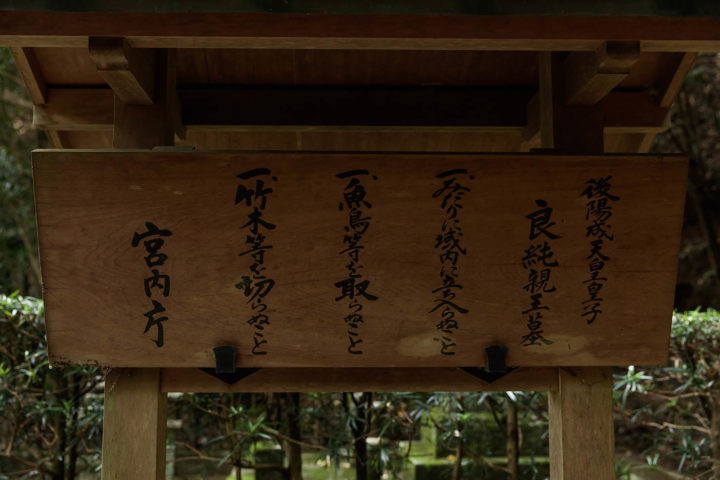 後陽成天皇皇子
良純親王墓
一、みだりに域内に立ち入らぬこと
一、魚鳥等を取らぬこと
一、竹木等を切らぬこと
宮内庁